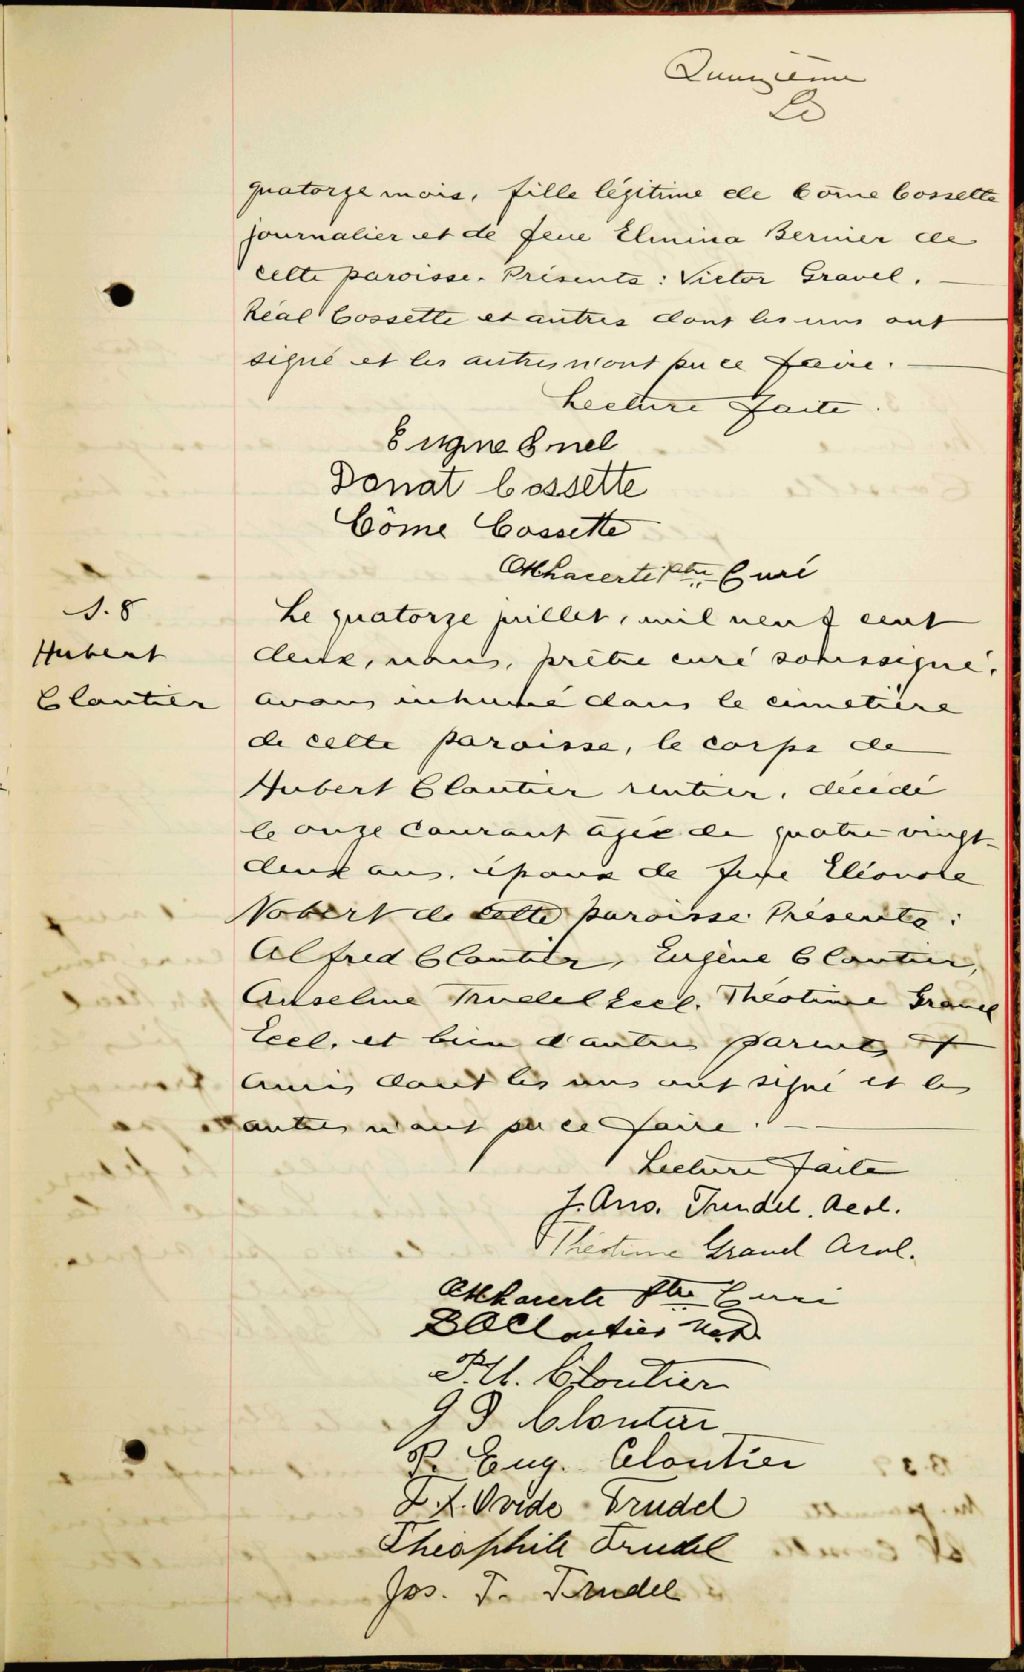 Quinzième
quatorze mois, fille légitime de Côme Cossette
journalier et de feue Elmina Bernier de
cette paroisse. Présents : Victor Gravel.
Réal Cossette et autres dont les uns ont
signé et les autres n'ont pu ce faire.
Lecture faite.
Donat Cossette
Côme Cossette
Ptre Curé
S. 8
Hubert
Cloutier
Le quatorze juillet, mil neuf cent
deux, nous, prêtre curé soussigné,
avons inhumé dans le cimetière
de cette paroisse, le corps de
Hubert Cloutier rentier, décédé
le onze courant âgé de quatre-vingt-
deux ans, époux de feue Eléonore
Nobert de cette paroisse. Présents :
Alfred Cloutier, Eugène Cloutier,
Anselme Trudel Eccl. Théotime Gravel
Eccl. et bien d'autres parents et
amis dont les uns ont signé et les
autres n'ont pu ce faire.
Lecture faite
J. Ans. Trudel. Acol.
Théotime Gravel Acol.
Ptre Curé
B O Cloutier N.P.
P. U. Cloutier
J P Cloutier
P. Eug. Cloutier
F. X. Ovide Trudel
Théophile Trudel
Jos. T. Trudel